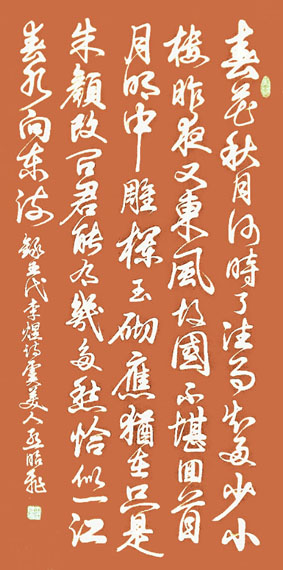 春花秋月何時了往事知多少小
樓昨夜又東風故國不堪回首
月明中雕欄玉砌應猶在只是
朱顏改問君能有幾多愁恰似一江
春水向東流 錄五代李煜詩虞美人